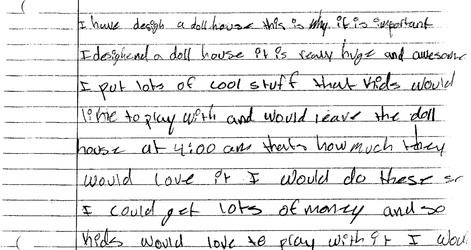 I have desigh a doll house this is why it is important
I desighend a doll house it is realy huge and awesome
I put lots of cool stuff that kids would
like to play with and would leave the doll
house at 4:00 am thats how much they
would love it I would do these so
I could get lots of money and so
kids would love to play with it I woul